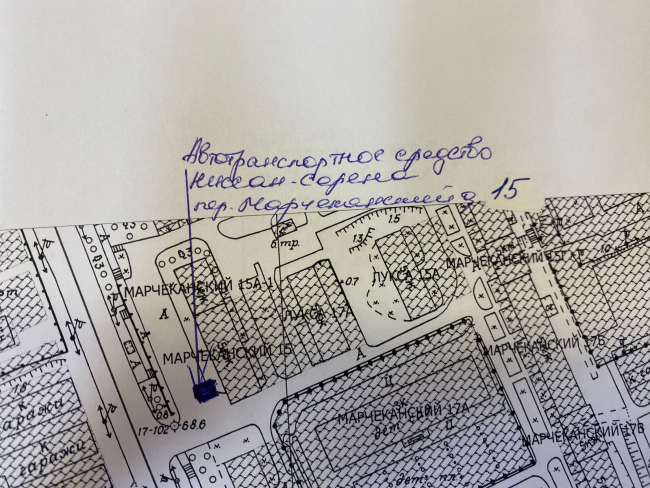 Автотранспортное средство
Ниссан-Серена
пер. Марчеканский 15
15
6 тр.
13
ЛУКСА 15А
МАРЧЕКАНСКИЙ 15А-1
0.7
МАРЧЕКАНСКИЙ 15Г
ЛУКСА 17
А
МАРЧЕКАНСКИЙ 15
А
МАРЧЕКАНСКИЙ 17Б
Ц
МАРЧЕКАНСКИЙ 17А
дет.
17-102 68.6
гаражи
гаражи
МАРЧЕКАНСКИЙ 17В
дет. пл.